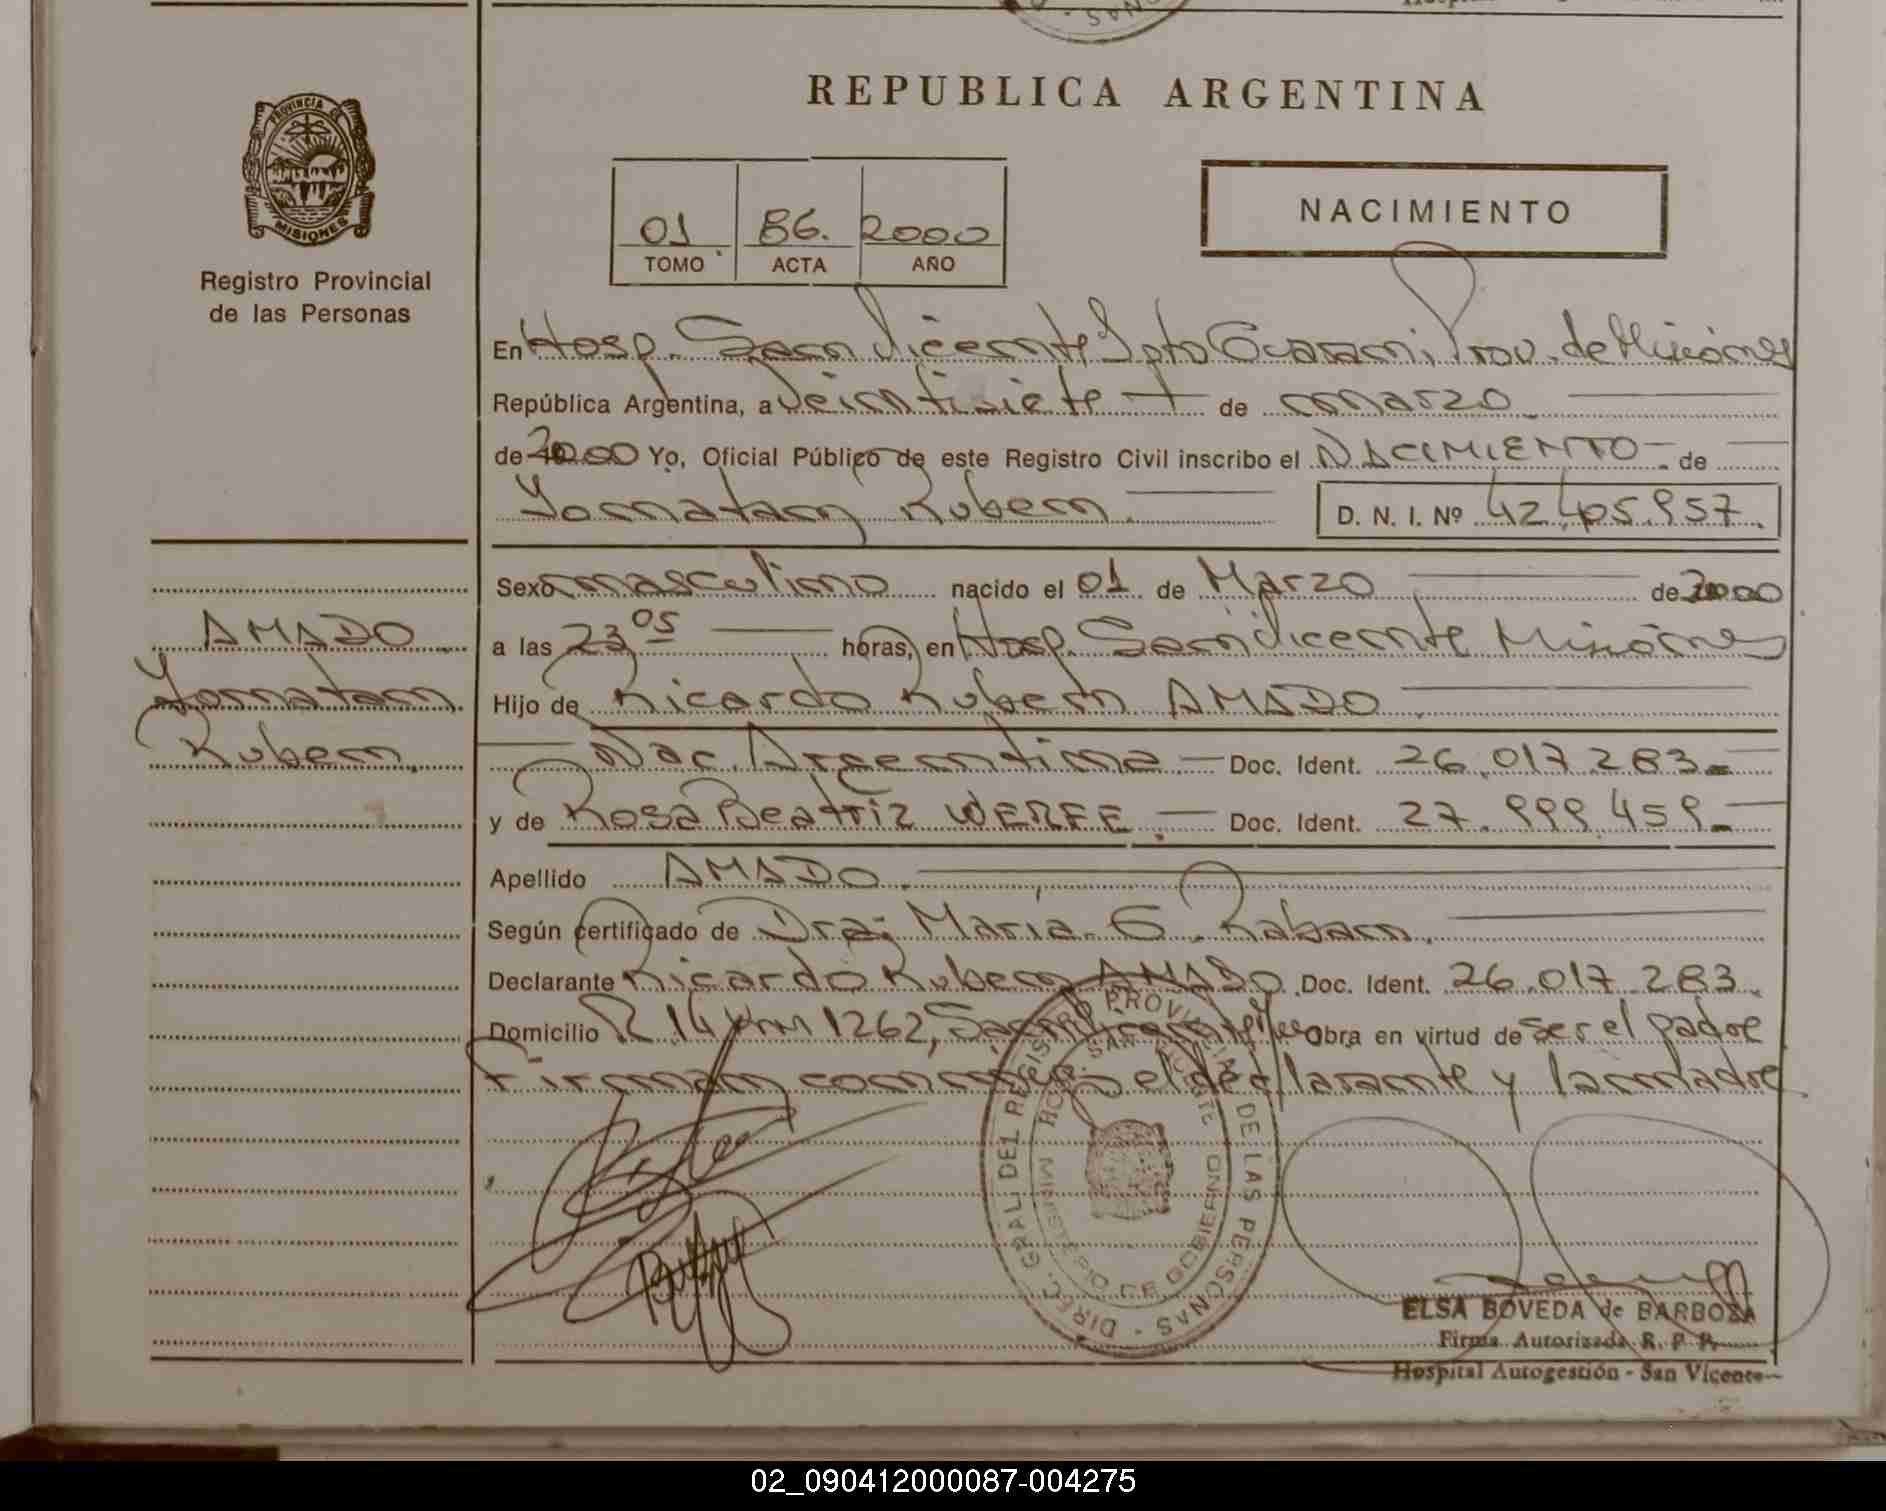 REPUBLICA ARGENTINA
PROVINCIA DE
MISIONES
Registro Provincial
de las Personas
01 86. 2000
TOMO ACTA AÑO
NACIMIENTO
En Hosp. San Vicente Dpto Guarani, Prov. de Misiones
República Argentina, a veintisiete de marzo
de 2000 Yo, Oficial Público de este Registro Civil inscribo el NACIMIENTO de
Yonatan Ruben D. N. I. Nº 42.405.957.
Sexo masculino nacido el 01 de Marzo de 2000
AMADO
a las 23 05 horas, en Hosp. San Vicente Misiones
Yonatan
Hijo de Ricardo Ruben AMADO
Ruben
Nac. Argentina Doc. Ident. 26.017.283
y de Rosa Beatriz WERFE Doc. Ident. 27.999.459
Apellido AMADO
Según certificado de Dra. Maria G. Raban
Declarante Ricardo Ruben AMADO Doc. Ident. 26.017.283
Domicilio R 14 Km 1262, San Vicente Obra en virtud de ser el padre
Firman conmigo el declarante y la madre
DIREC. GRAL DEL REGISTRO PROVINCIAL DE LAS PERSONAS
MINISTERIO DE GOBIERNO
ELSA BOVEDA de BARBOZA
Firma Autorizada R. P. P.
Hospital Autogestión - San Vicente
02_090412000087-004275